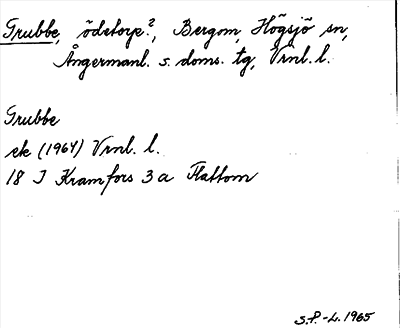 Grubbe, ödetorp?, Bergom, Högsjö sn,
Ångermanl. s. doms. tg, Vrnl. l.
Grubbe
ek (1964) Vrnl. l.
18 J Kramfors 3 a Flattom
S.P.-L. 1965